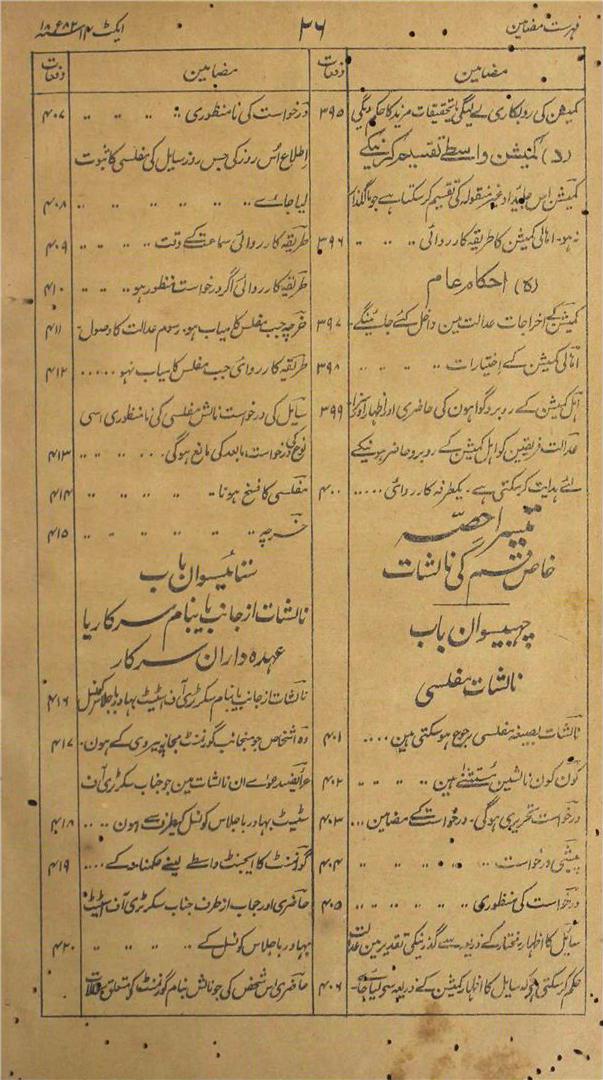 فہرست مضامین
۳۶
ایکٹ ۱۴ سنہ ۱۸۸۲ ع
مضامین
دفعات
کمیشن کی روبکاری لے لیگی یا تحقیقات مزید کا حکم دیگی
۳۹۵
(د) کمیشن واسطے تقسیم کرنیکے
کمیشن اس جایداد غیر منقولہ کی تقسیم کرسکتا ہے جو مالگذار
نہ ہو۔ اہالی کمیشن کا طریقہ کارروائی
۳۹۶
(ہ) احکام عام
کمیشن کے اخراجات عدالت مین داخل کئے جائینگے۔
۳۹۷
اہالی کمیشن کے اختیارات
۳۹۸
اہل کمیشن کے روبرو گواہون کی حاضری اور اظہار
۳۹۹
عدالت فریقین کو اہل کمیشن کے روبرو حاضر ہونیکے
لئے ہدایت کرسکتی ہے۔ یکطرفہ کارروائی
۴۰۰
تیسرا حصّہ
خاص قسم کی نالشات
چھبیسوان باب
نالشات مفلسی
نالشات بصیغہ مفلسی رجوع ہوسکتی ہین
۴۰۱
کون کون نالشین مستثنےٰ ہین
۴۰۲
درخواست تحریری ہوگی۔ درخواست کے مضامین
۴۰۳
پیشی درخواست
۴۰۴
درخواست کی منظوری
۴۰۵
سایل کا اظہار مختار کے ذریعہ سے گذرنیکی تقدیر مین عدالت
حکم کرسکتی ہے کہ سایل کا اظہار کمیشن کے ذریعہ سے لیا جاے۔
۴۰۶
مضامین
دفعات
درخواست کی نامنظوری
۴۰۷
اطلاع اُس روز کی جس روز سایل کی مفلسی کا ثبوت
لیا جاے
۴۰۸
طریقہ کارروائی سماعت کے وقت
۴۰۹
طریقہ کارروائی اگر درخواست منظور ہو
۴۱۰
خرچہ جب مفلس کامیاب ہو۔ رسوم عدالت کا وصول۔
۴۱۱
طریقہ کارروائی جب مفلس کامیاب نہو
۴۱۲
سایل کی درخواست نالش مفلسی کی نامنظوری اسی
نوع کی درخواست مابعد کی مانع ہوگی
۴۱۳
مفلسی کا فسخ ہونا
۴۱۴
خرچہ
۴۱۵
ستائیسوان باب
نالشات از جانب یا بنام سرکار یا
عہدہ داران سرکار
نالشات از جانب یا بنام سکرٹری آف اسٹیٹ بہادر باجلاس کونسل
۴۱۶
وہ اشخاص جو منجانب گورنمنٹ مجاز پیروی کے ہون۔
۴۱۷
عرایض دعوے ان نالشات مین جو جناب سکرٹری آف
سٹیٹ بہادر باجلاس کونسل کیطرف سے ہون
۴۱۸
گورنمنٹ کا ایجنٹ واسطے لینے حکمنامہ کے
۴۱۹
حاضری اور جواب از طرف جناب سکرٹری آف اسٹیٹ
بہادر باجلاس کونسل کے
۴۲۰
حاضری اس شخص کی جو نالش بنام گورنمنٹ کے متعلق